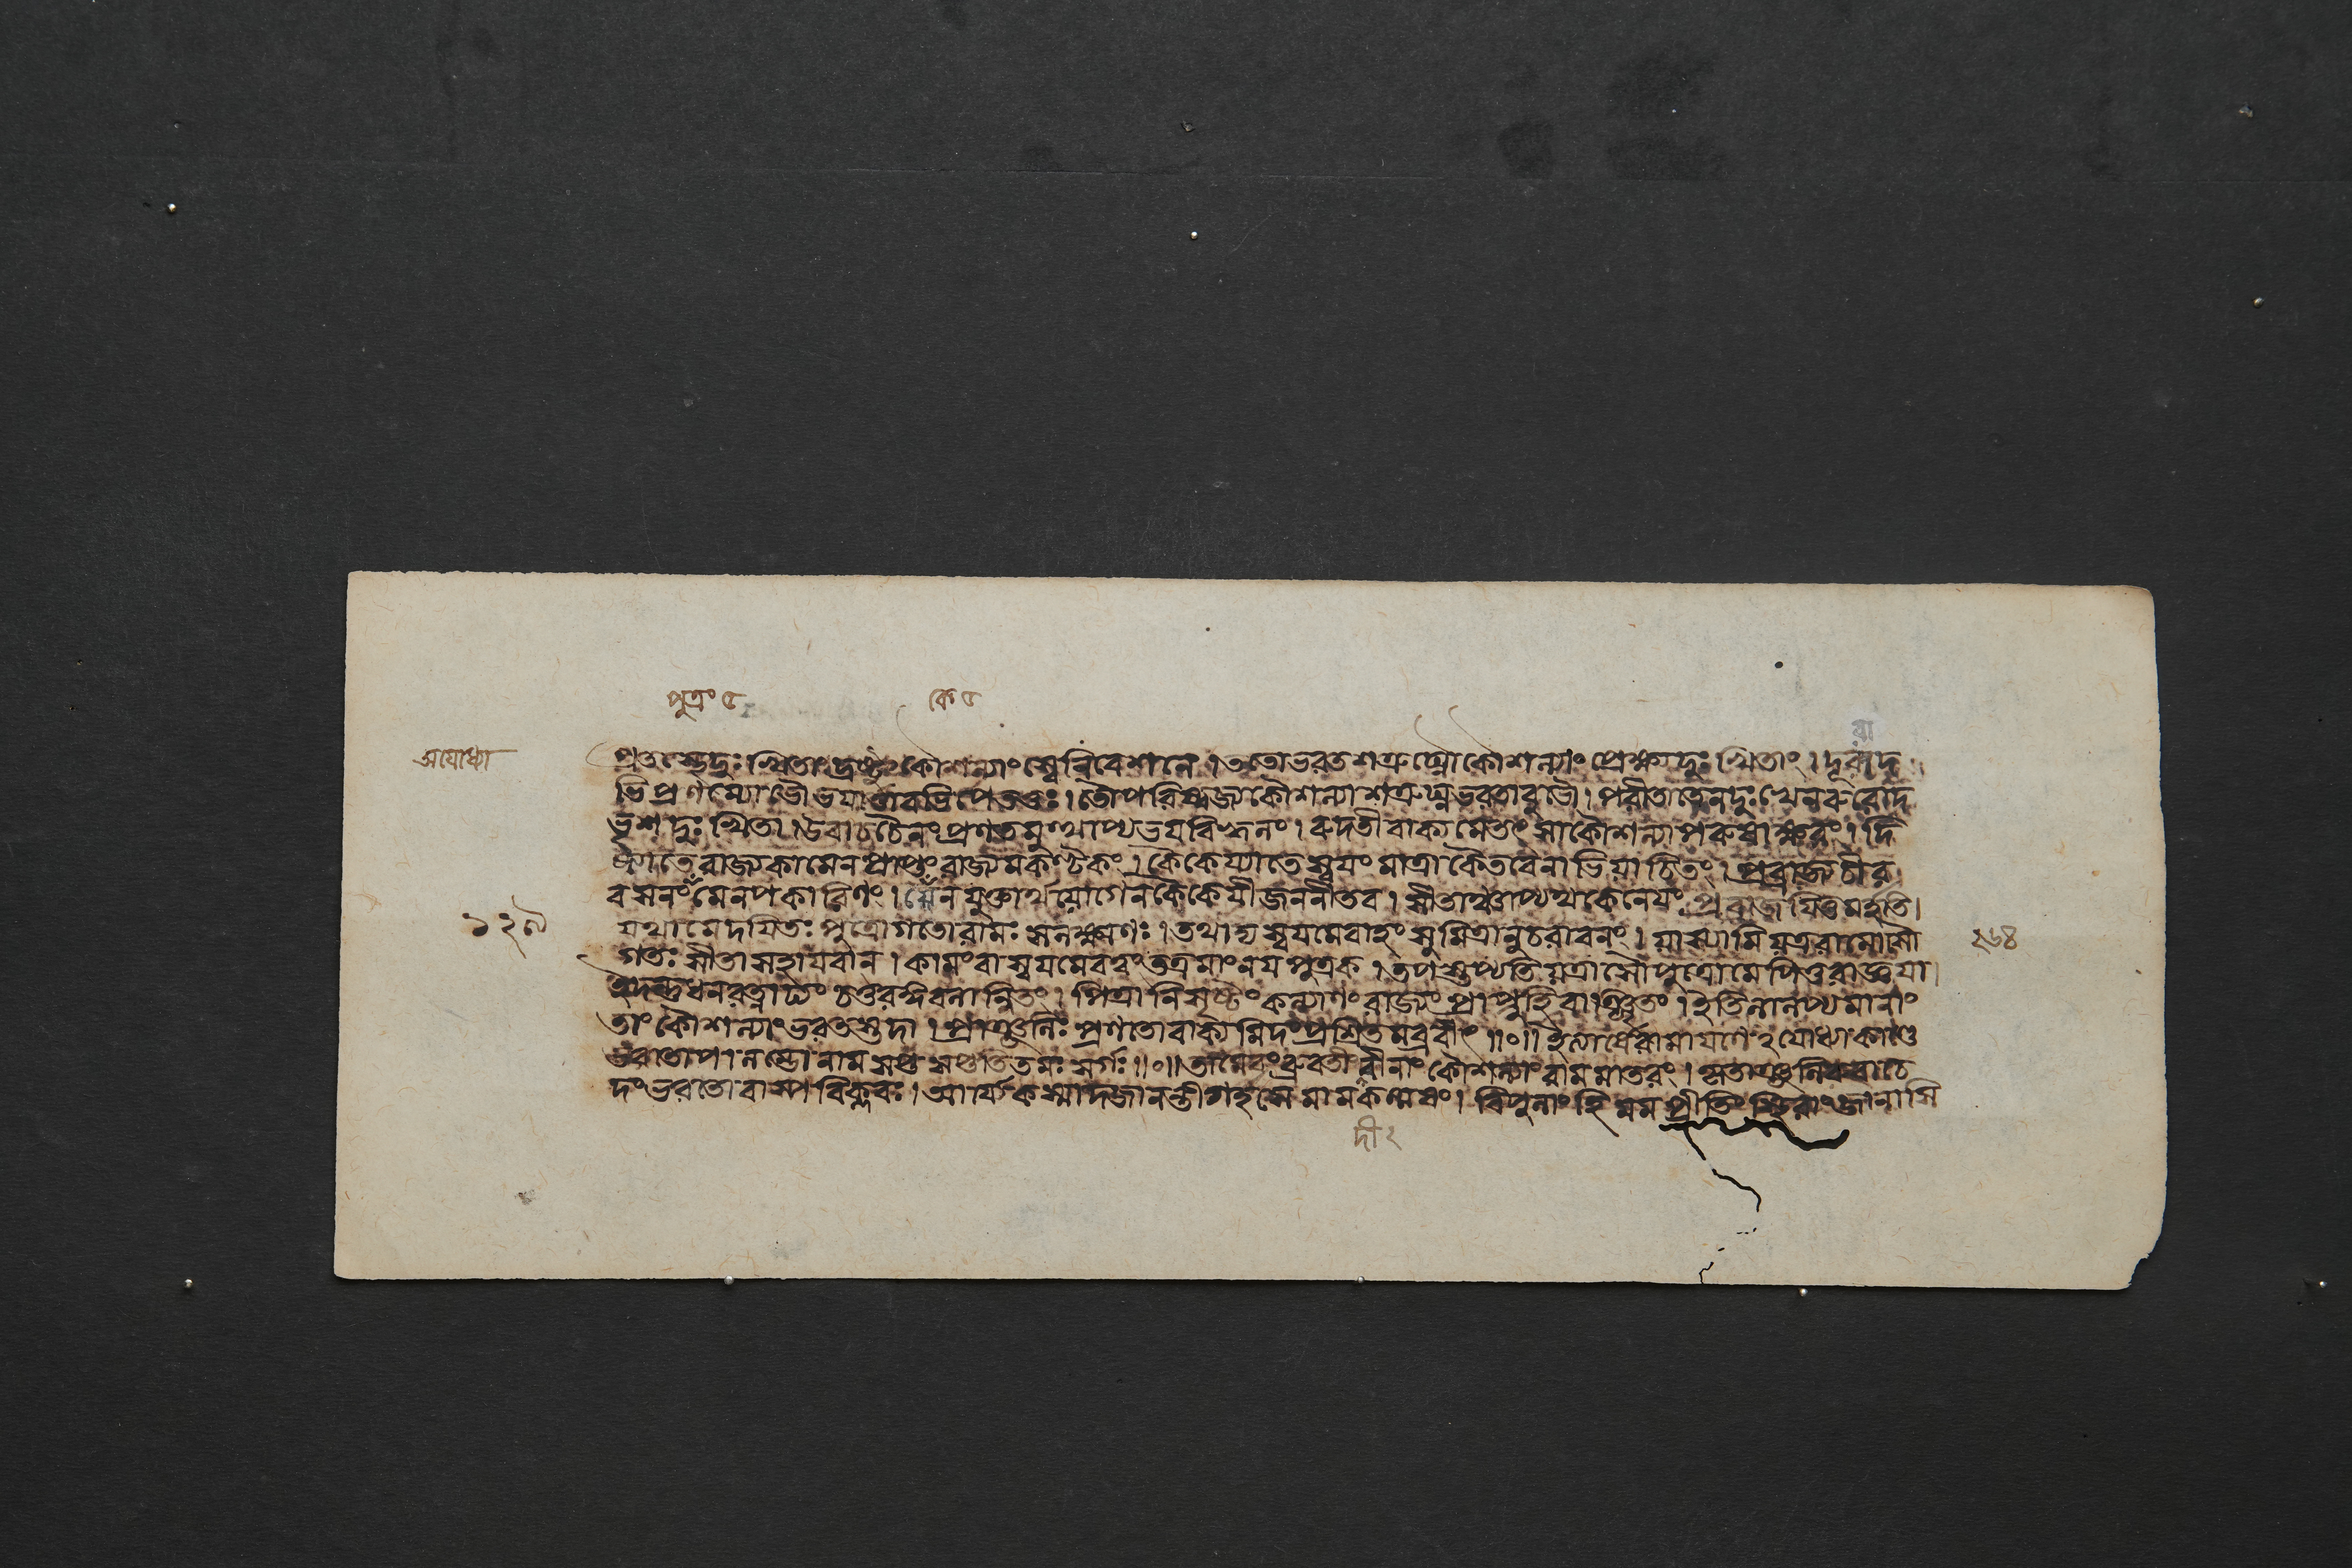 পুত্রং ৫ কে ৫
রা
অযোধ্যা
প্রতস্থে দুঃখিতাং দ্রষ্টুং কৌশল্যাং স্বে নিবেশনে । ততো ভরতশত্রুঘ্নৌ কৌশল্যাং প্রেক্ষ্য দুঃখিতাং । দূরাদ
ভিপ্রণম্যোভৌ ভয়ার্ত্তাবভিপেততুঃ । তৌ পরিষ্বজ্য কৌশল্যা শত্রুঘ্নভরতাবুভৌ । পরীতা তেন দুঃখেন রুরোদ
ভৃশদুঃখিতা । উবাচ চৈনং প্রণতমুত্থাপ্য ভয়বিহ্বলং । রুদতী বাক্যমেতৎ সা কৌশল্যা পরুষাক্ষরং । দি
ষ্ট্যা তে রাজ্যকামেন প্রাপ্তং রাজ্যমকণ্টকং । কৈকেয্যা তে স্বয়ং মাত্রা কৈতবেনাভিযাচিতং । প্রব্রাজ্য চীর
বসনং মেনপকারিণং । কেন যুক্তার্থযোগেন কৈকেয়ী জননী তব । সীতাঞ্চাপ্যথ কেনেয়ং প্রব্রাজয়িতুমর্হতি ।
১২৯
যথা মে দয়িতঃ পুত্রো গতো রামঃ সলক্ষ্মণঃ । তথাদ্য স্বয়মেবাহং সুমিত্রানুচরা বনং । যাস্যামি যত্র রামোসৌ
২৬৪
গতঃ সীতাসহায়বান । কামং বা স্বয়মেব ত্বং তত্র মাং নয় পুত্রক । তপস্তপ্যতি যত্রাসৌ পুত্রো মে পিতুরাজ্ঞয়া ।
ইদন্তু ধনরত্নাঢ্যং চতুরঙ্গবলান্বিতং । পিত্রা নিসৃষ্টং কল্যাণং রাজ্যং প্রাপ্নুহি বাঞ্ছিতং । ইতি লালপ্যমানাং
তাং কৌশল্যাং ভরতস্তদা । প্রাঞ্জলিঃ প্রণতো বাক্যমিদং প্রশ্রিতমব্রবীৎ ॥০॥ ইত্যার্ষে রামায়ণে ঽযোধ্যাকাণ্ডে
ভরতোপালম্ভো নাম সপ্তসপ্ততিতমঃ সর্গঃ ॥০॥ তামেবং ব্রুবতীং দীনাং কৌশল্যাং রামমাতরং । কৃতাঞ্জলিরুবাচে
দং ভরতো বাষ্পবিক্লবঃ । আর্য্যে কস্মাদজানন্তী গর্হসে মামকল্মষং । বিপুলাং হি মম প্রীতিং স্থিরাং জানাসি
দী ২